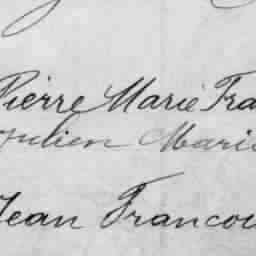 Pierre Marie Fra
Julien Marie
Jean Francoi